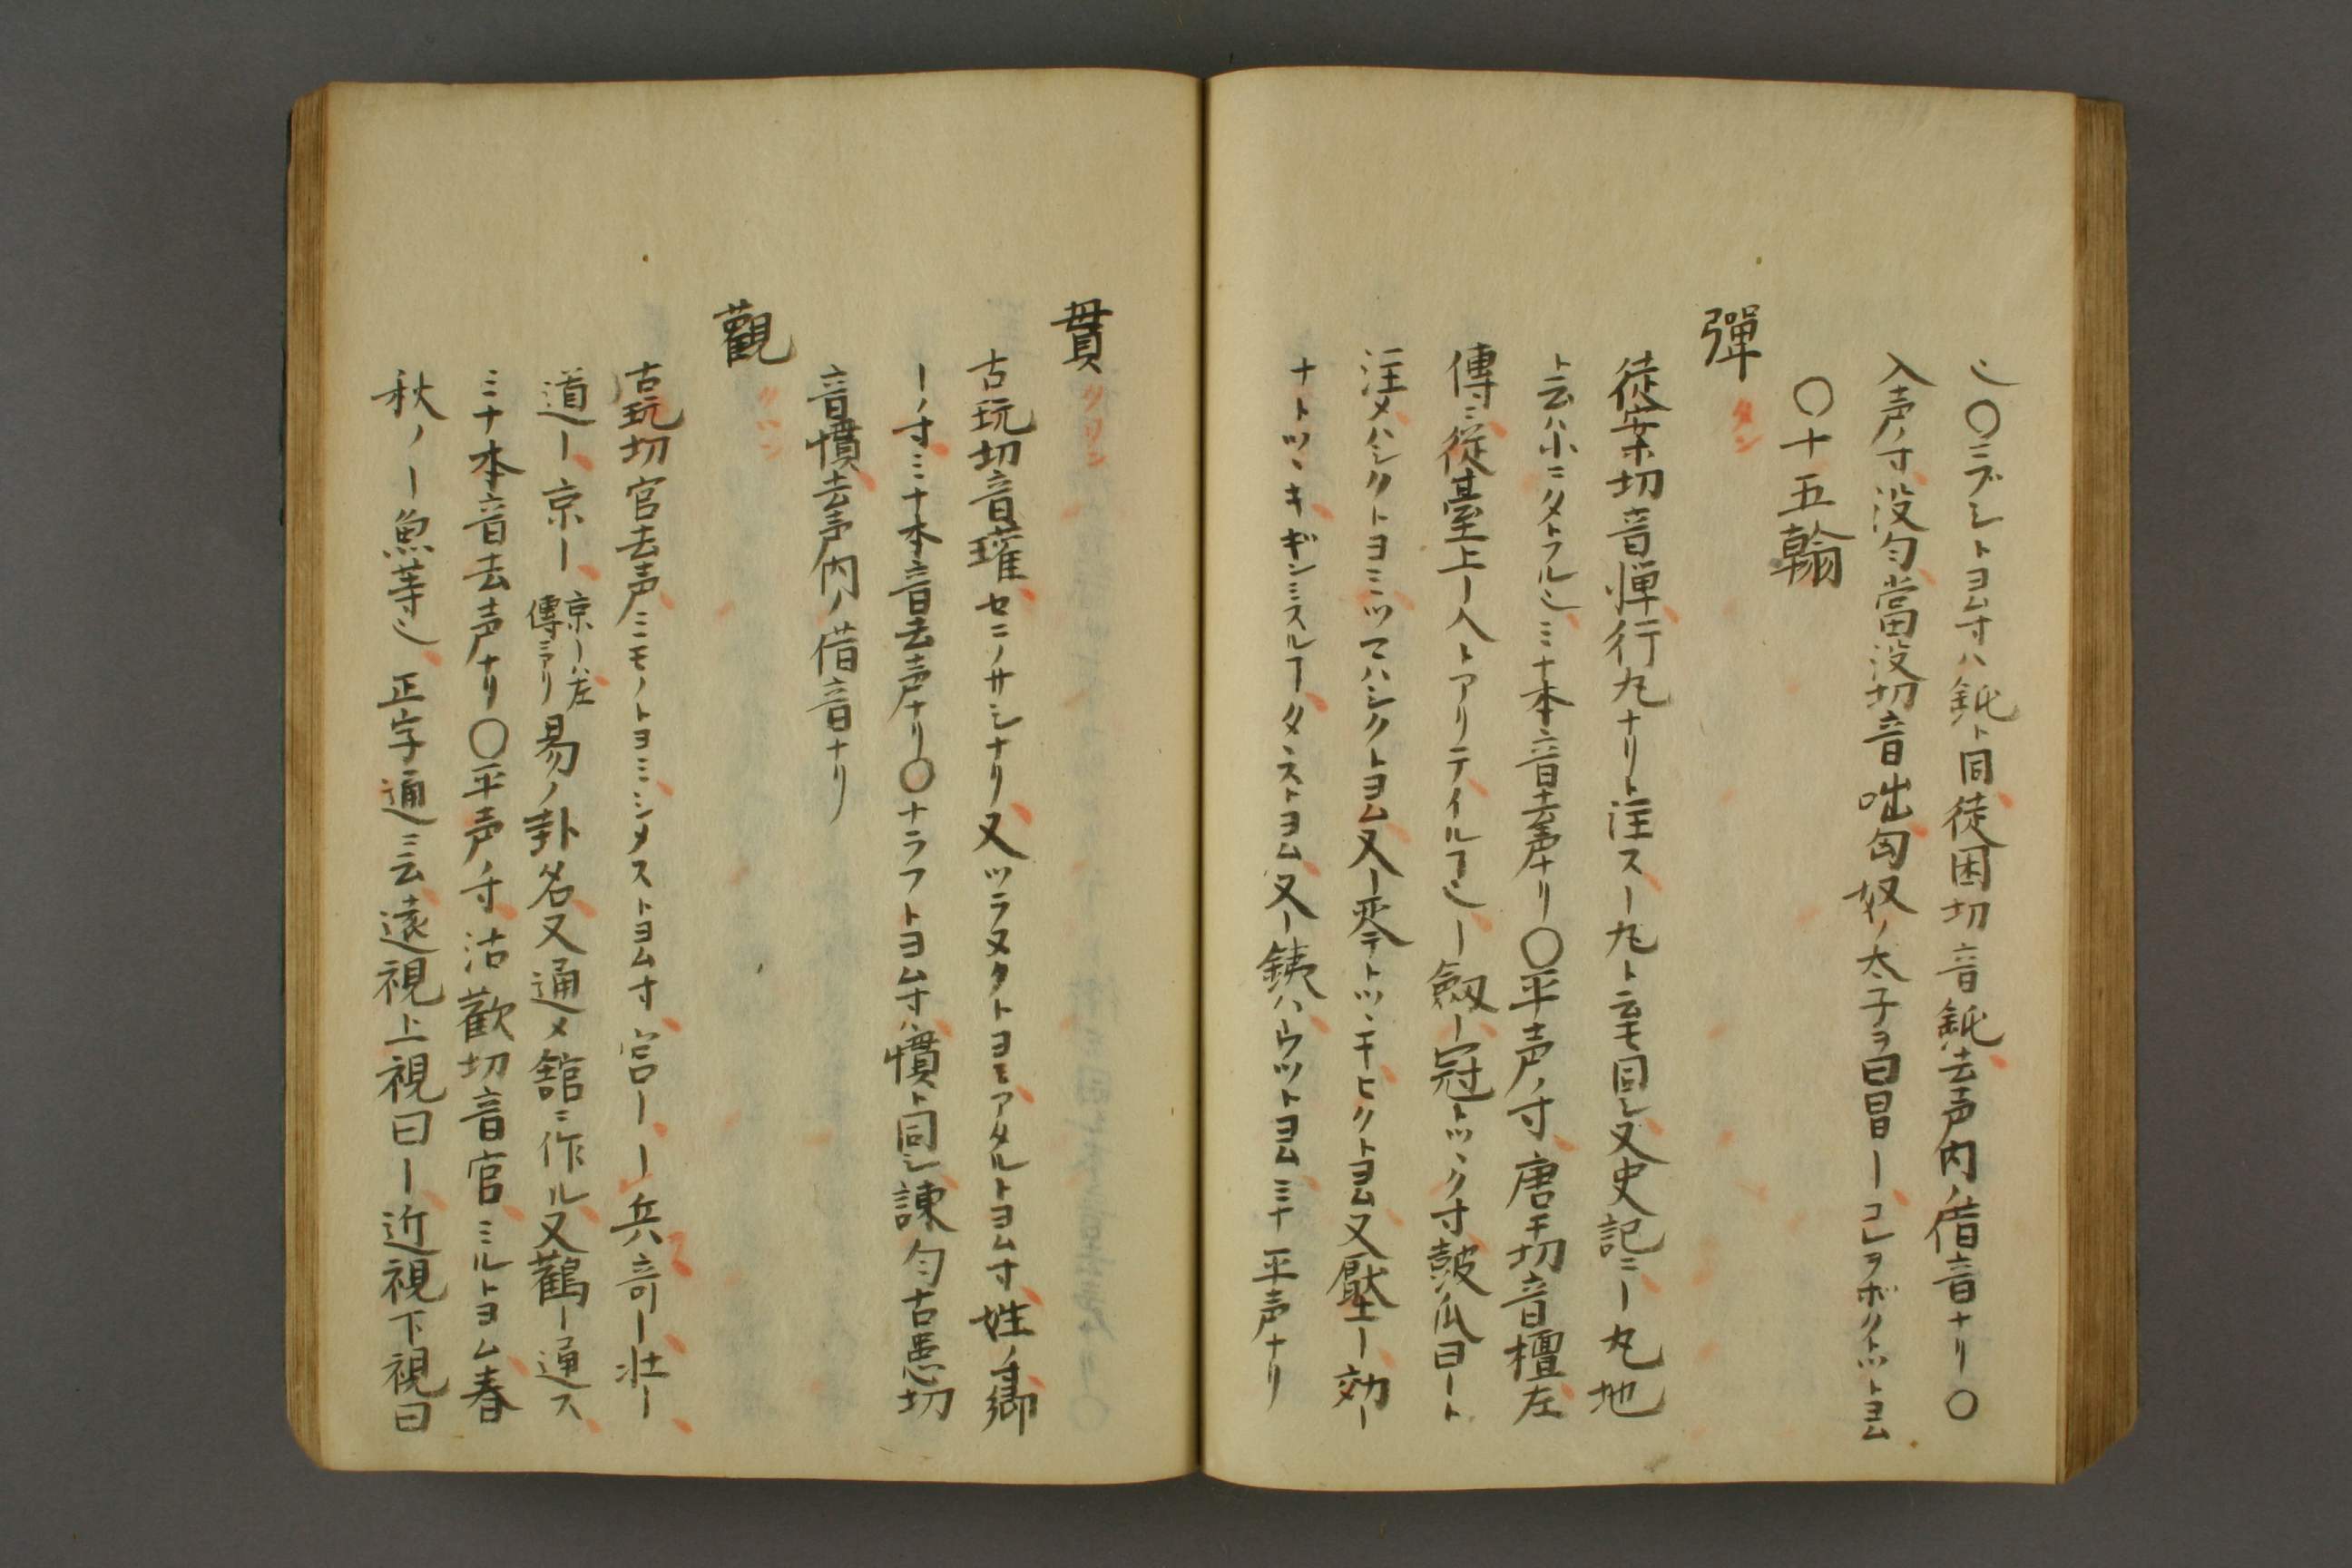 也〇ニブシトヨム寸ハ鈍ト同徒困切音鈍去声内ノ借音ナリ〇
入声ノ寸没勻當没切音咄匈奴ノ太子ヲ曰冒ーコレヲボクトツトヨム
〇十五翰
彈 タン
徒案切音憚行丸ナリト注スー丸ト云モ同シ又史記ニー丸地
ト云ハ小ニタトフル也ミナ本音去声ナリ〇平声ノ寸唐干切音檀左
傳ニ従臺上ー人トアリテイルヿ也ー劔ー冠トツヽク寸鼓爪曰ート
注メハシクトヨミツマハシクトヨム又ー琴テトツヽキヒクトヨム又壓ー効ー
ナトツヽキギンミスルヿタヽストヨム又ー鋏ハウツトヨムミナ平声ナリ
貫 クワン
古玩切音瓘セニノサシナリ又ツラヌクトヨミアタルトヨム寸姓ノ寸郷
ーノ寸ミナ本音去声ナリ〇ナラフトヨム寸ハ慣ト同シ諌勻古患切
音慣去声内ノ借音ナリ
觀 クハン
古玩切官去声ミモノトヨミシメストヨム寸宮ーー兵奇ー壮ー
道ー京ー京ーハ左傳ニアリ易ノ卦名又通メ舘ニ作ル又鸛ー通ス
ミナ本音去声ナリ〇平声ノ寸沽歡切音官ミルトヨム春
秋ノー魚等也正字通ニ云遠視上視曰ー近視下視曰